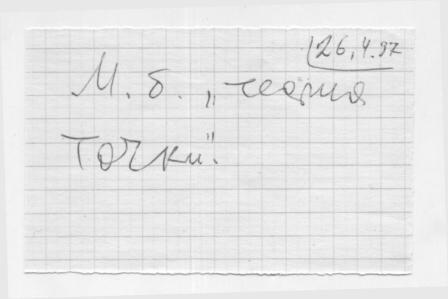 26.4.97
М. б. „теория
точки".